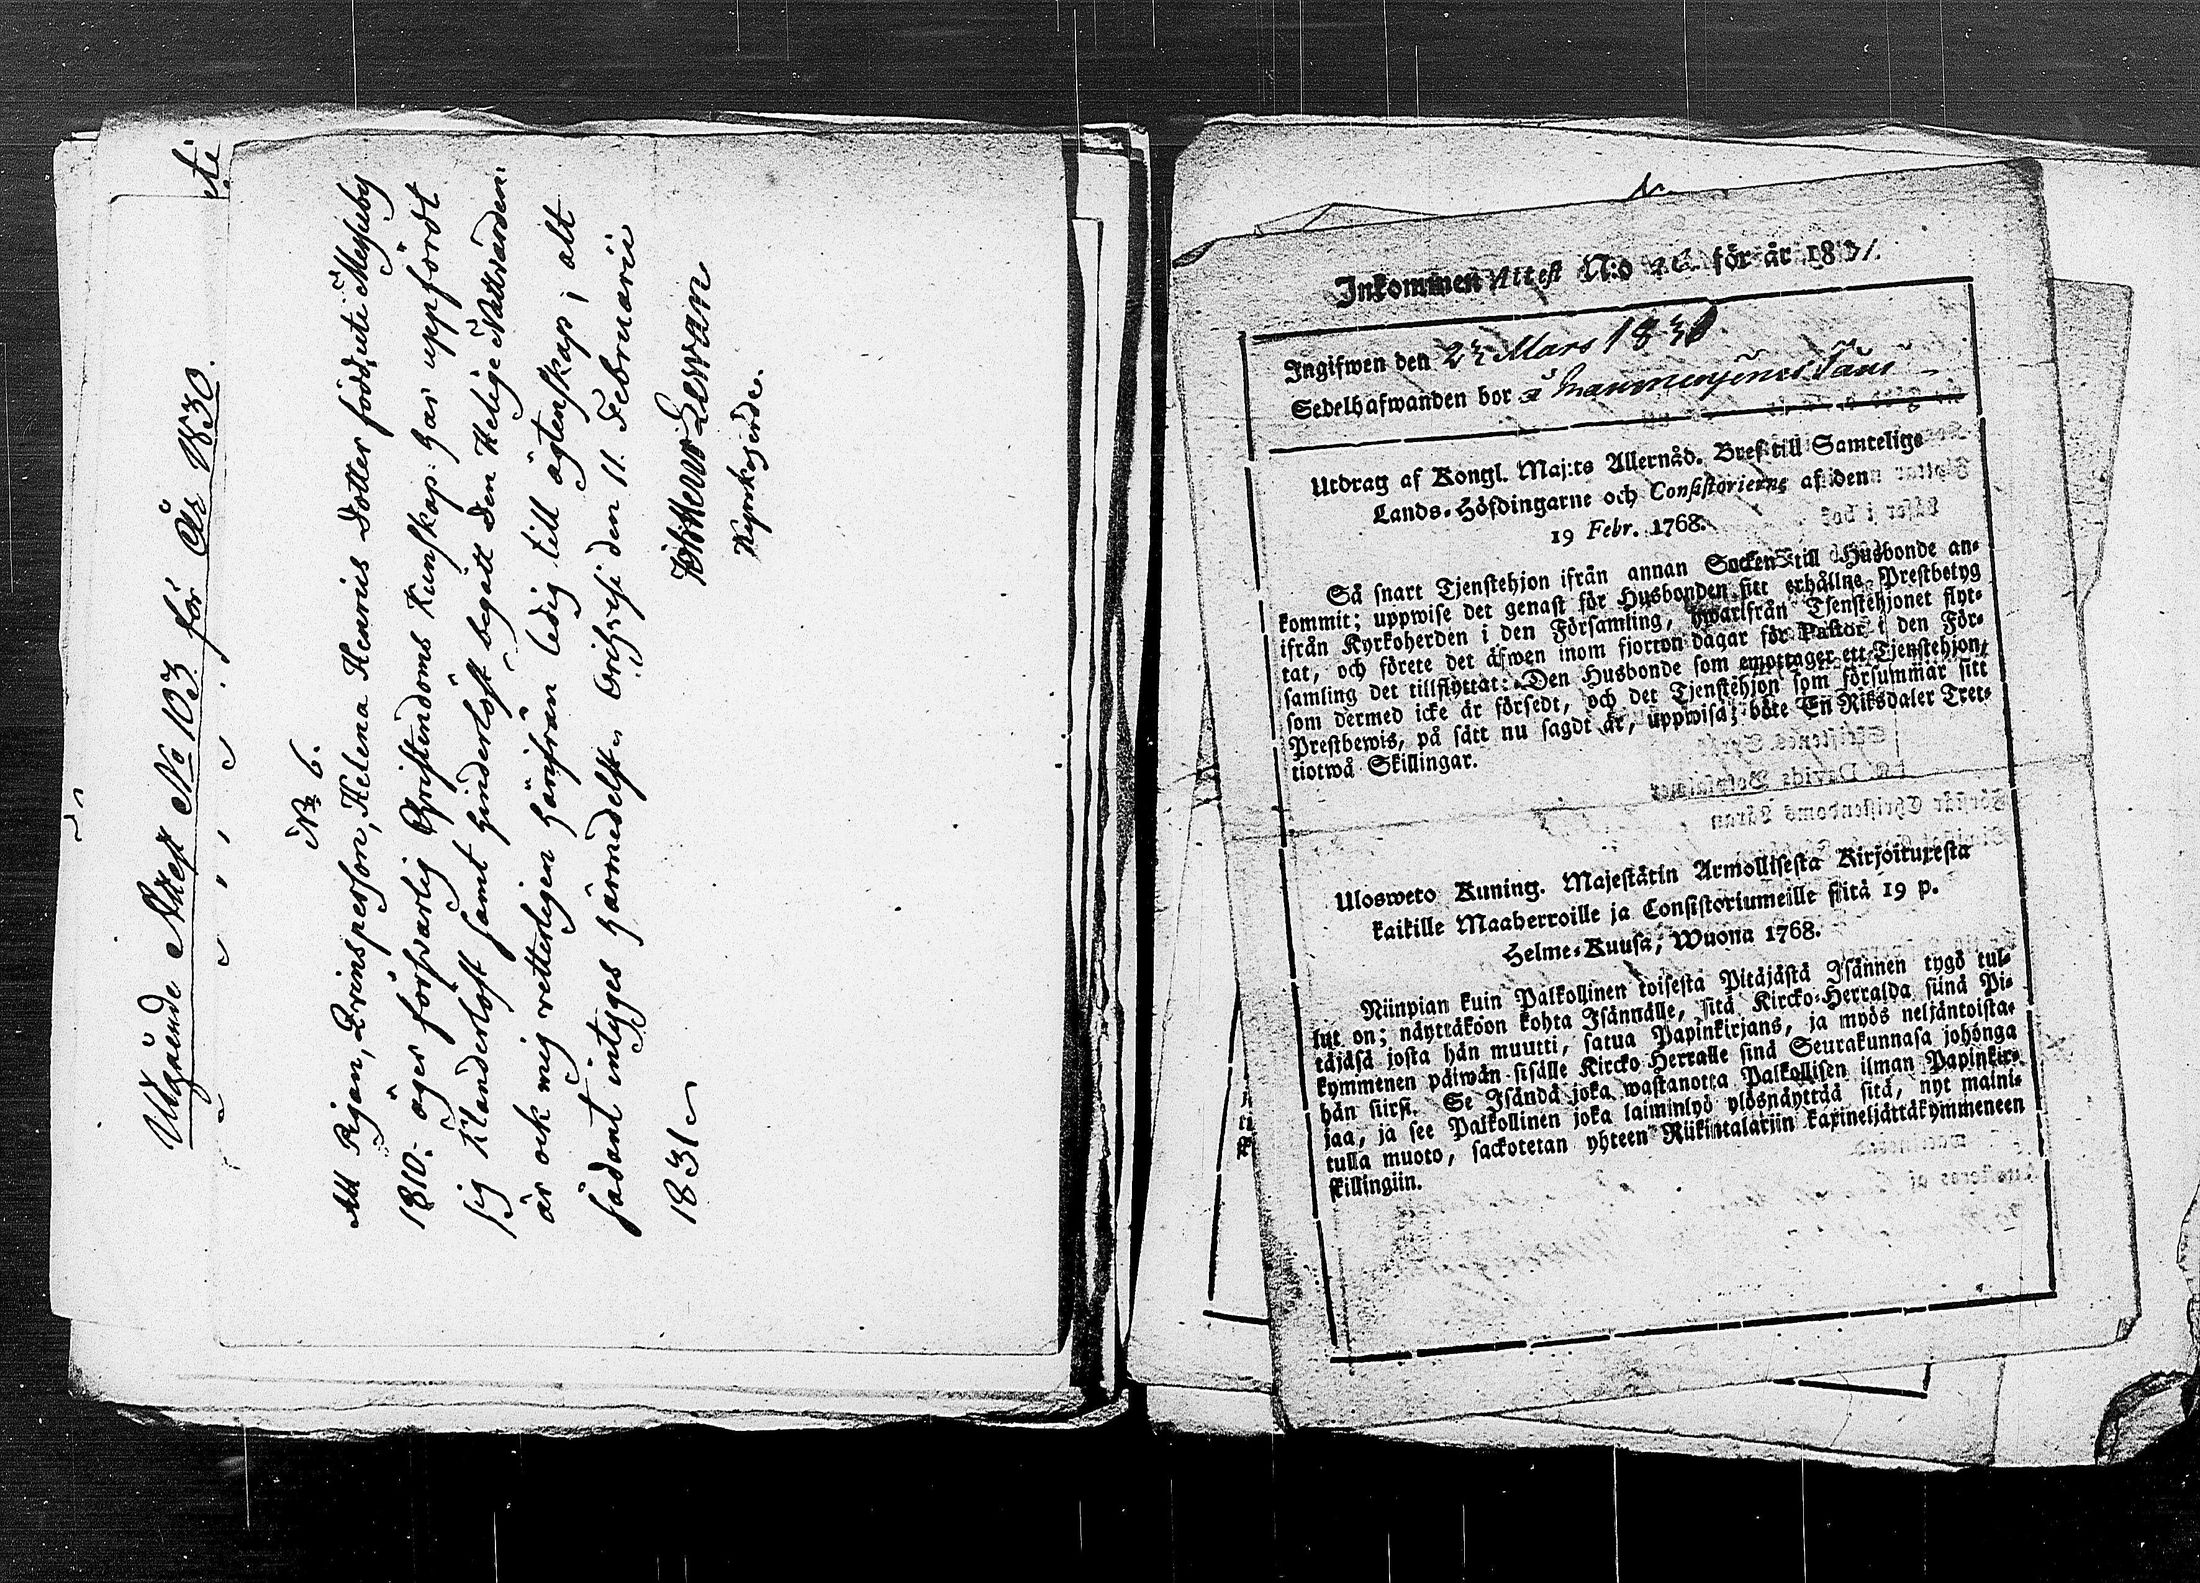 Utgående Attest No 103 för År 1830.
No 6.
Att Pigan, Qvinsperson, Helena Henrics dotter född uti Messuby
1810. äger försvarlig Christendoms Kunskap: har uppfördt
sig klanderlöst samt hinderlöst begått den Helige Nattvarden:
är ock mig vetterligen härifrån ledig till ägtenskap; alt
sådant intyges härmedelst. Orihvesi den 11. Februarii
1831.
Kyrkoherde.
Inkommen Attest N:o för år 1831.
Ingifwen den 24 Mars 1831
Sedelhafwanden bor å
Utdrag af Kongl. Maj:ts Allernåd. Bref till Samtelige
Lands-Höfdingarne och Consistorierne af den
19 Febr. 1768.
Så snart Tjenstehjon ifrån annan Socken till Husbonde an-
kommit; uppwise det genast för Husbonden sitt erhållne Prestbetyg
ifrån Kyrkoherden i den Församling, hwarifrån Tjenstehjonet flyt-
tat, och förete det äfwen inom fjorton dagar för Pastor i den För-
samling det tillflyttat: Den Husbonde som emottager ett Tjenstehjon,
som dermed icke är försedt, och det Tjenstehjon som försummar sitt
Prestbewis, på sätt nu sagdt är, uppwisa; böte En Riksdaler Tret-
tiotwå Skillingar.
Ulosweto Kuning. Majestätin Armollisesta Kirjoituxesta
kaikille Maaherroille ja Consistoriumeille siitä 19 p.
Helme-Kuusa, Wuona 1768.
Niinpian kuin Palkollinen toisesta Pitäjästä Isännen tygö tul-
lut on; näyttäköön kohta Isännälle, sitä Kircko-Herralda siinä Pi-
täjäsä josta hän muutti, saatua Papinkirjans, ja myös neljäntoista-
kymmenen päiwän sisälle Kircko Herralle siinä Seurakunnasa johonga
hän siirsi. Se Isändä joka wastanotta Palkollisen ilman Papinkir-
jaa, ja see Palkollinen joka laiminlyö ylösnäyttää sitä, nyt maini-
tulla muoto, sackotetan yhteen Riikintalariin kaxineljättäkymmeneen
skillingiin.